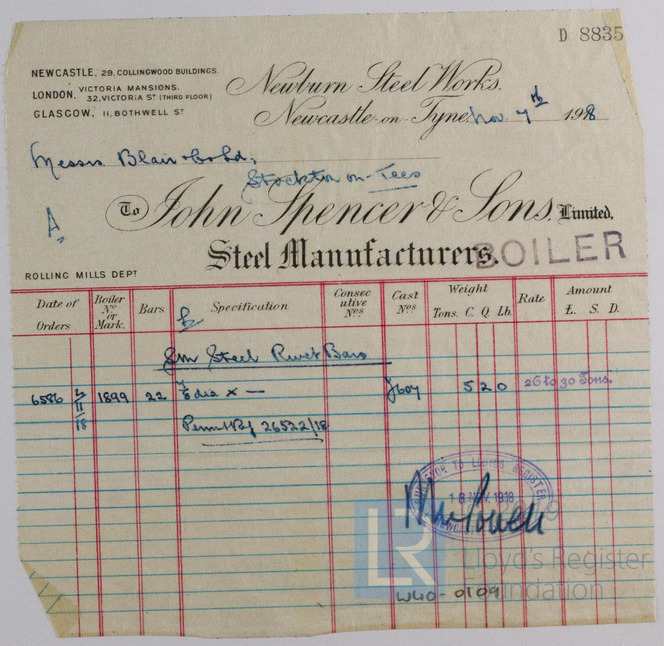 D 8835
NEWCASTLE, 29, COLLINGWOOD BUILDINGS.
LONDON, VICTORIA MANSIONS,
32, VICTORIA ST (THIRD FLOOR)
GLASGOW, 11, BOTHWELL ST
Newburn Steel Works.
Newcastle-on-Tyne. Nov. 7th 1918
Messrs Blair & Co Ld,
Stockton on-Tees
A.
To John Spencer & Sons, Limited,
Steel Manufacturers.
BOILER
ROLLING MILLS DEPT
Date of Orders Boiler No or Mark. Bars Specification Consecutive Nos Cast Nos Weight Tons. C. Q Lb. Rate Amount £. S. D.
Sm Steel Rivet Bars
6586 5/11/18 1899 22 7/8 dia x — 5 2 0 26 to 30 Tons.
26522/18
SURVEYOR TO LLOYD'S REGISTER
18 NOV. 1918
LR
Lloyd's Register
Foundation
W40-0109